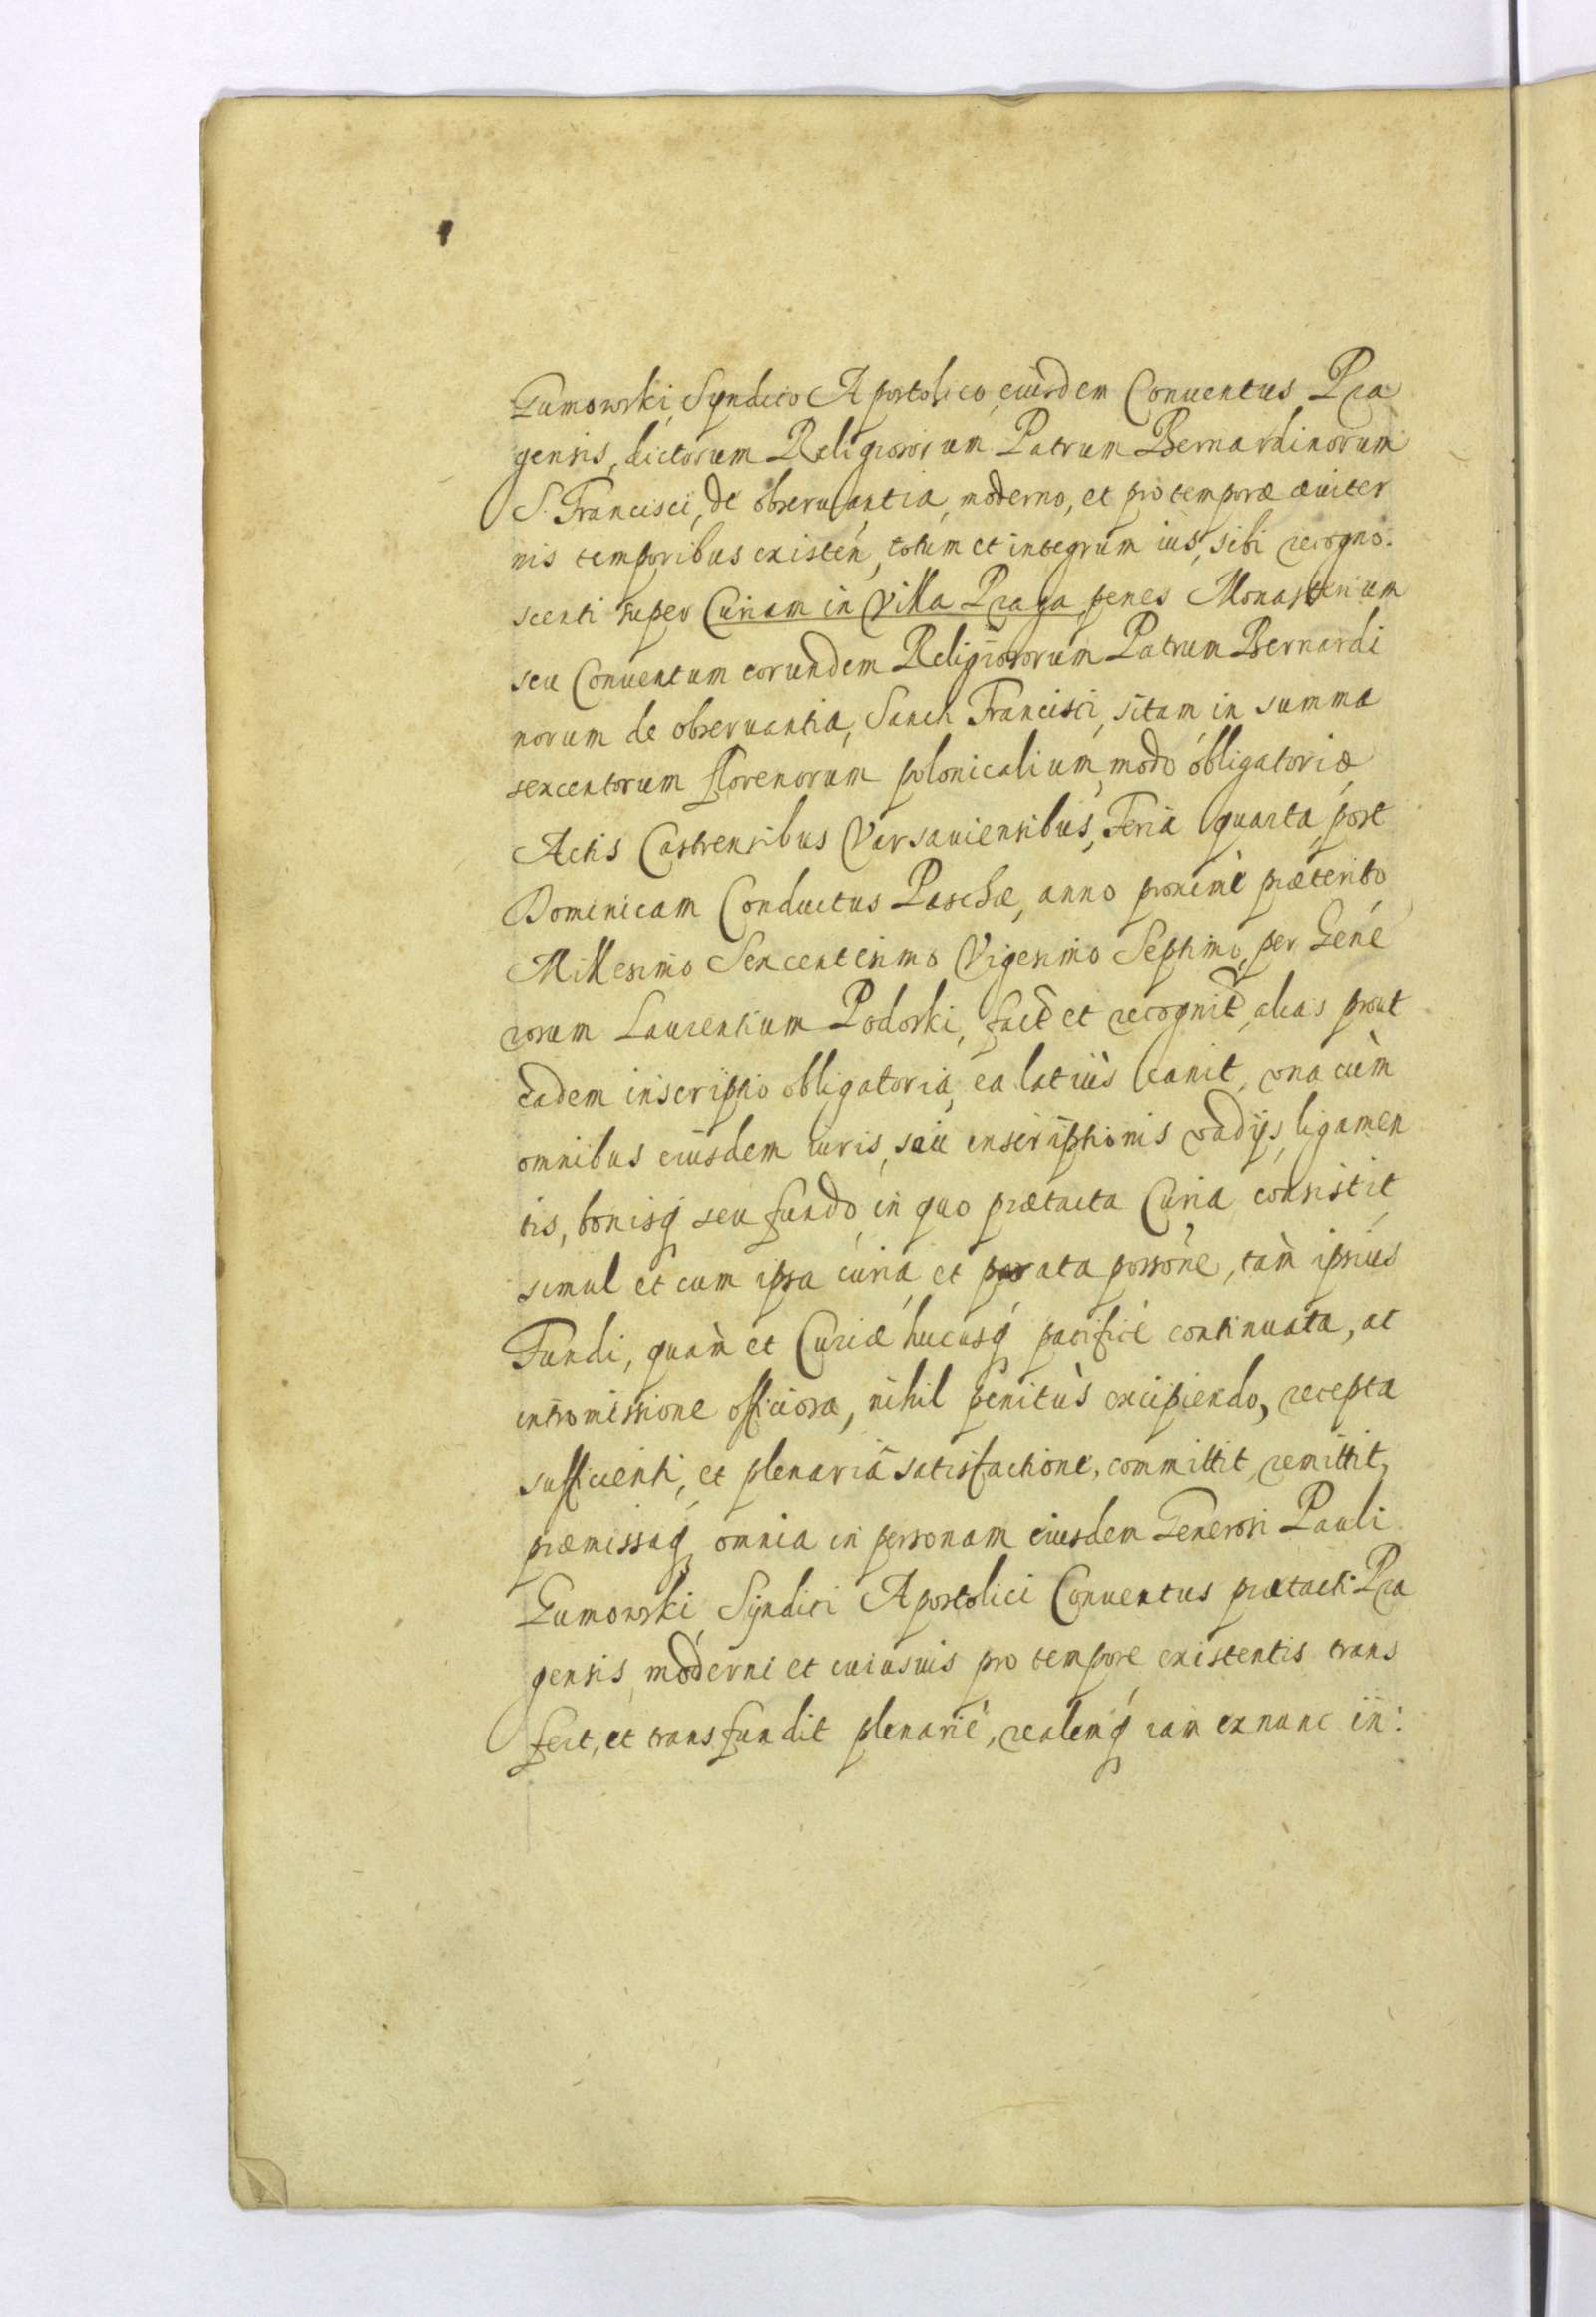 Gumowski, Syndico Apostolico, eiusdem Conuentus Pra
gensis, dictorum Religiosorum Patrum Bernardinorum
S. Francisci, de obseruantia, moderno, et pro tempore æuiter
nis temporibus existeñ, totum et integrum ius, sibi recogno:
scenti super Curiam in Villa Praga penes Monasterium
seu Conuentum eorundem Religiosorum Patrum Bernardi
norum de obseruantia, Sancti Francisci, sitam in summa
sexcentorum florenorum polonicalium, modo obligatoriæ
Actis Castrensibus Varsauiensibus, Feria quarta post
Dominicam Conductus Paschæ, anno proximè præterito
Millesimo Sexcentesimo Vigesimo Septimo, per Gene
rosum Laurentium Podoski, fact et recognit, alias prout
eadem inscriptio obligatoria, ea latiùs canit, vna cùm
omnibus eiusdem iuris, seu inscriptionis vadijs, ligamen
tis, bonisq seu fundo, in quo prætacta Curia consistit,
simul et cum ipsa curia et parata possone, tàm ipsius
Fundi, quàm et Curiæ hucusq pacificè continuata, at
intromissione officiosa, nihil penitùs excipiendo, recepta
sufficienti, et plenariâ satisfactione, committit, remittit,
præmissaq omnia in personam eiusdem Generosi Pauli
Gumowski Syndici Apostolici Conuentus prætacti Pra
gensis, moderni et cuiusuis pro tempore existentis trans
fert, et transfundit plenariè, realemq iam ex nunc in: